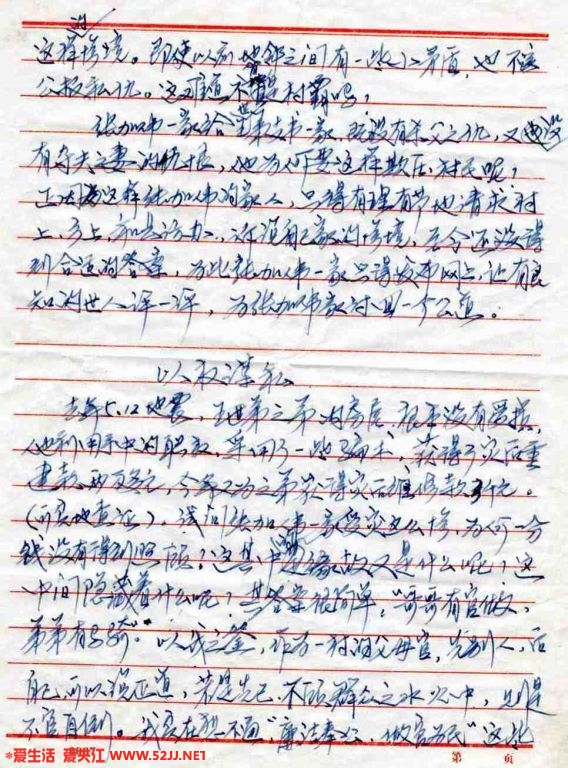 这样惨境。即使以前邻之间有一些小矛盾,也不该
公报私仇。这难道不是村霸吗?
张加书一家给王弟支书一家,既没有杀父之仇,又没
有夺夫妻的仇恨,他为何要这样欺压村民呢?
正因为这样张加书的家人,只得有理有节地请求村
上、乡上、和县访办,诉说自己家的惨境,至今还没得
到合适的答案,为此张加书一家只得发布网上,让有良
知的世人评一评,为张加书家讨回一个公道。
以权谋私
去年5.12地震,王弟之弟的房屋,根本没有受损,
他利用手中的职权,采用了一些骗术,获得了灾后重
建款两万多元,今年又为之弟获得灾后维修款元。
(可实地查证),试问张加书一家受灾这么惨,为何一分
钱没有得到照顾?这其中的缘故又是什么呢?这
中间隐藏着什么呢?其答案很简单,“哥哥有官做,
弟弟有”。以我之鉴,作为一村的父母官,先别人,后
自己,可以说正道,若是先己,不顾群众之水火中,则是
不官自倒。我实在想不通“廉洁奉公,做官为民”这些
*爱生活 爱夹江 WWW.52JJ.NET
第 页